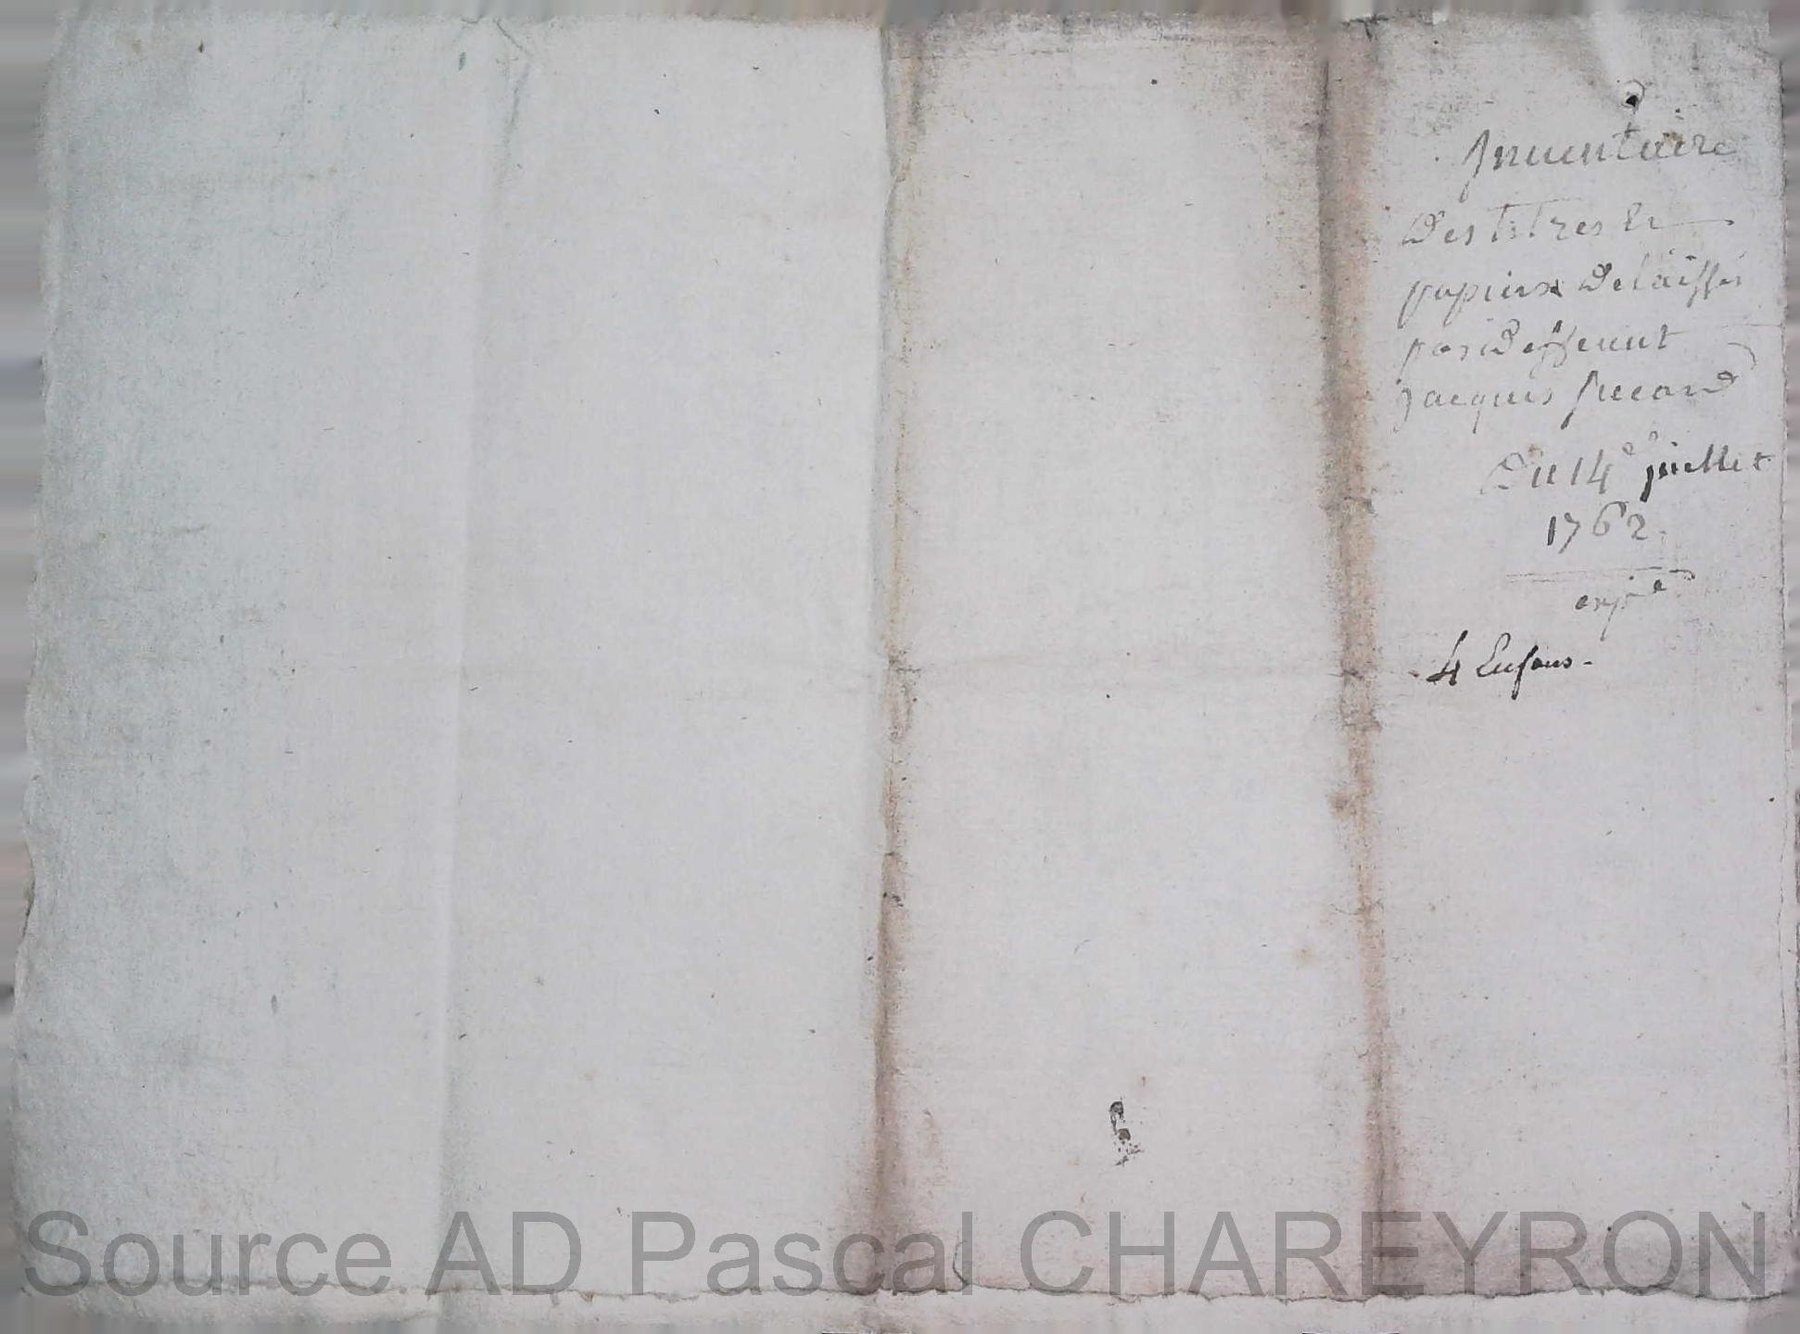 Inventaire
Des titres Et
papiers Delaissés
par Deffeunt
Jacques
Du 14e juillet
1762
expé
4 Enfans.
Source AD Pascal CHAREYRON